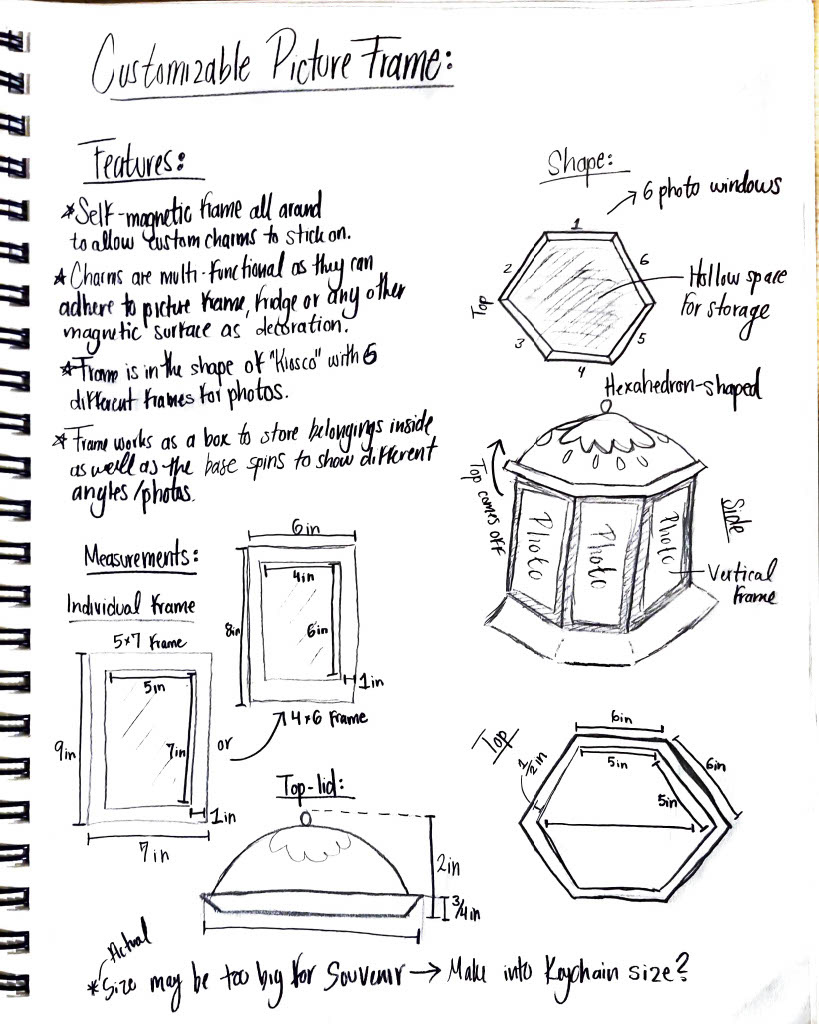 Customizable Picture Frame:
Features:
*Self-magnetic frame all around
to allow custom charms to stick on.
*Charms are multi-functional as they can
adhere to picture frame, fridge or any other
magnetic surface as decoration.
*Frame is in the shape of "Kiosco" with 6
different frames for photos.
*Frame works as a box to store belongings inside
as well as the base spins to show different
angles/photos.
Shape:
6 photo windows
1
2
6
Top
Hollow space
for storage
3
5
4
Hexahedron-shaped
Top comes off
Photo
Photo
Photo
Side
Vertical
frame
Measurements:
Individual frame
5x7 frame
5in
7in
9in
1in
7in
or
6in
4in
8in
6in
1in
4x6 frame
Top-lid:
2in
3/4in
Top
6in
1/2in
5in
6in
5in
Actual
*Size may be too big for Souvenir → Make into Keychain size?